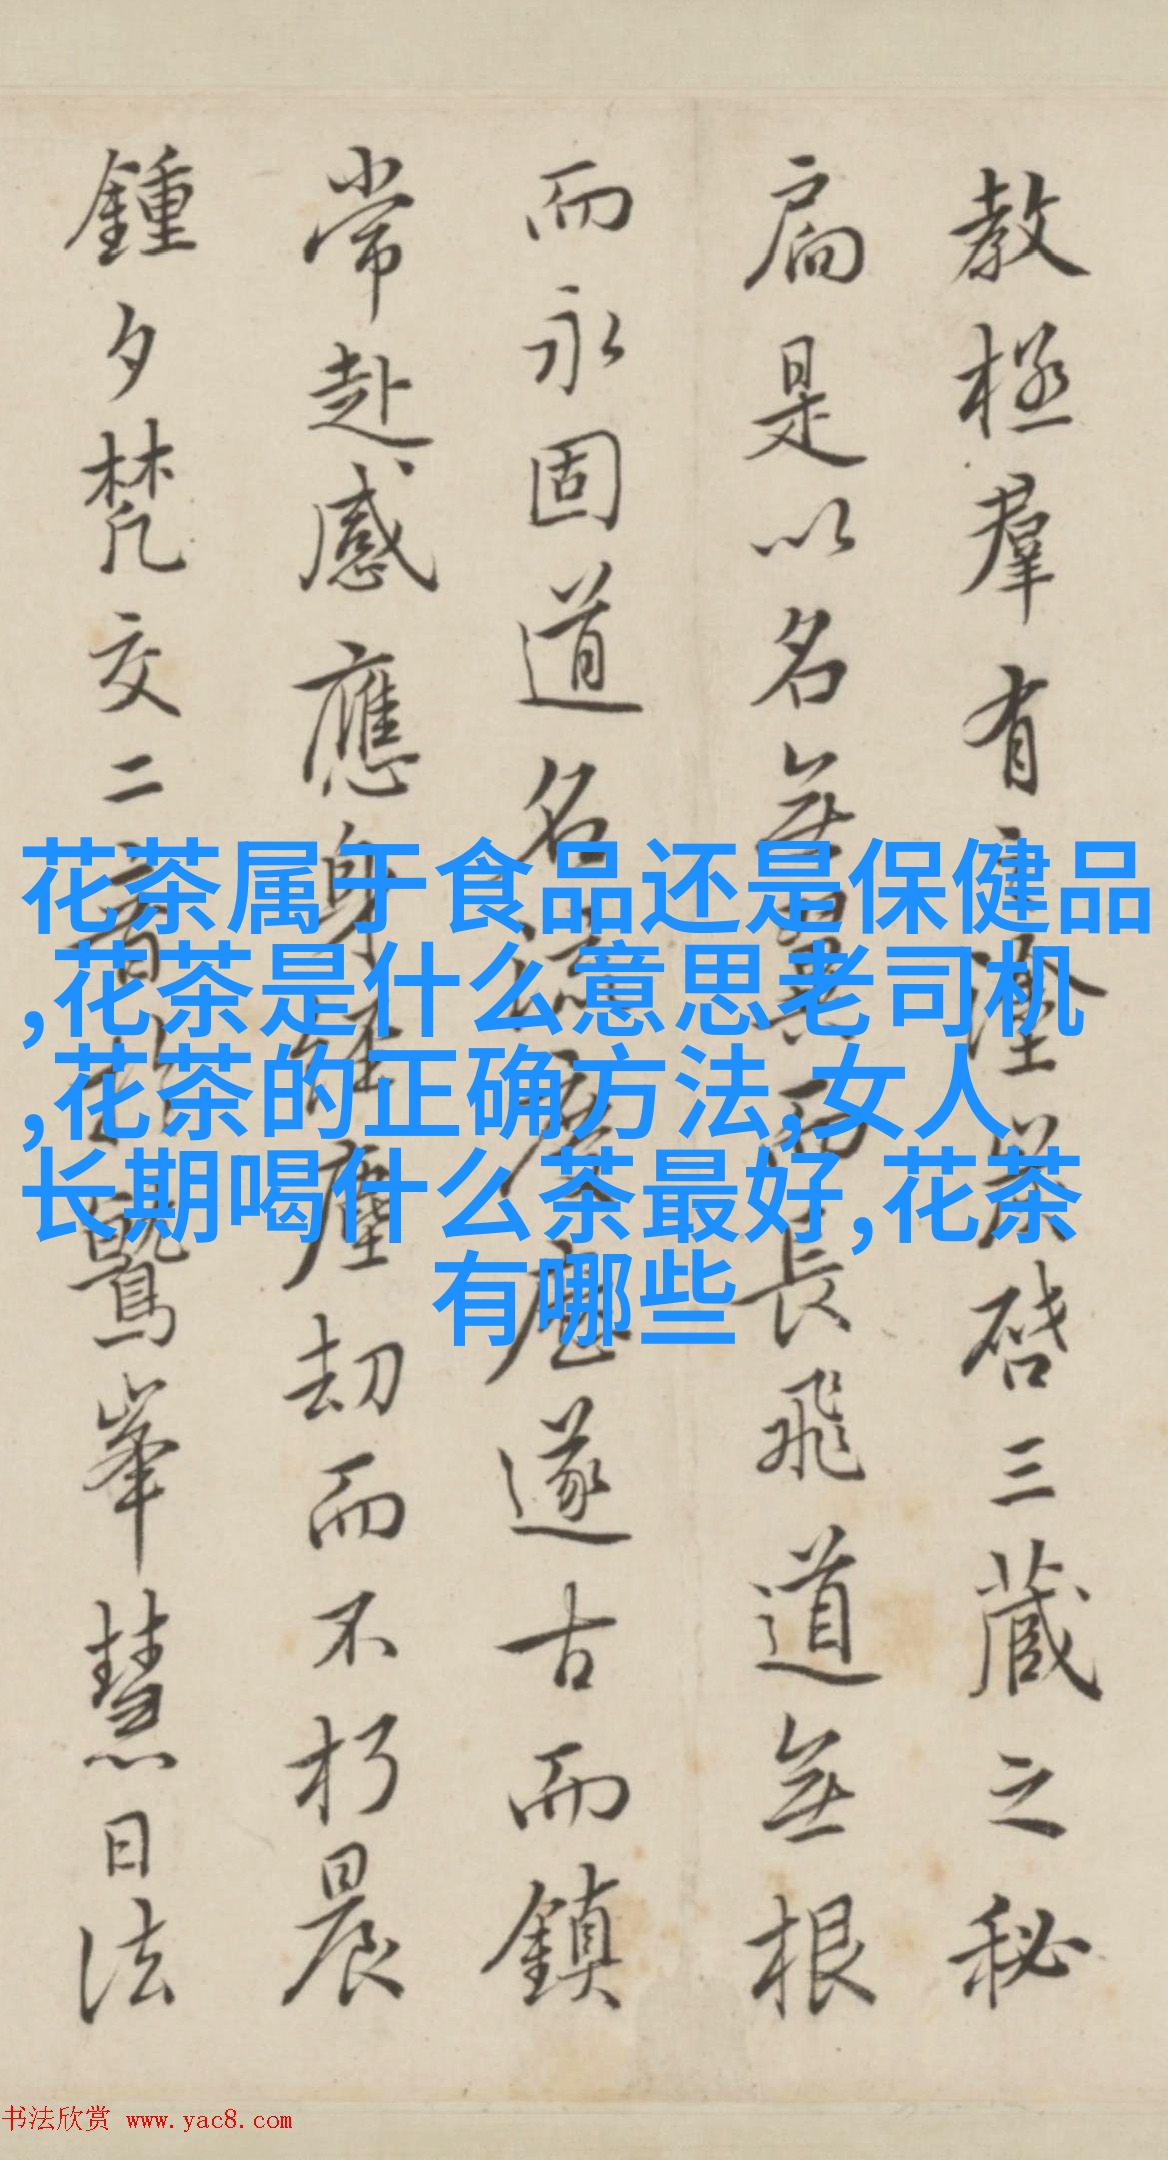 教極羣有之塗炭啓三藏之秘
扃是以名無翼而長飛道無根
而永固道名流慶歷遂古而鎮
常赴感應身經塵劫而不朽晨
鍾夕梵交二音於鷲峯慧日法
花茶属于食品还是保健品
,花茶是什么意思老司机
,花茶的正确方法,女人
长期喝什么茶最好,花茶
有哪些
书法欣赏 www.yac8.com